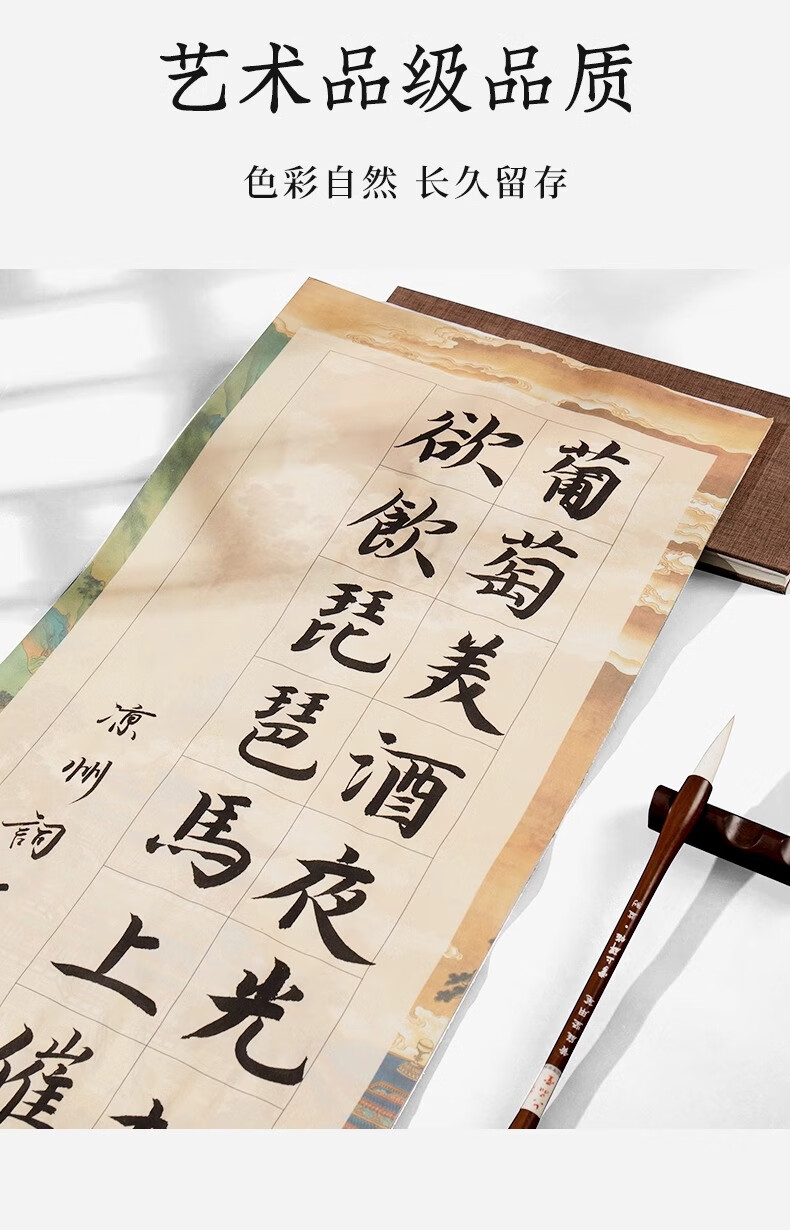 艺术品级品质
色彩自然 长久留存
葡萄美酒夜光
欲飲琵琶馬上催
凉州詞